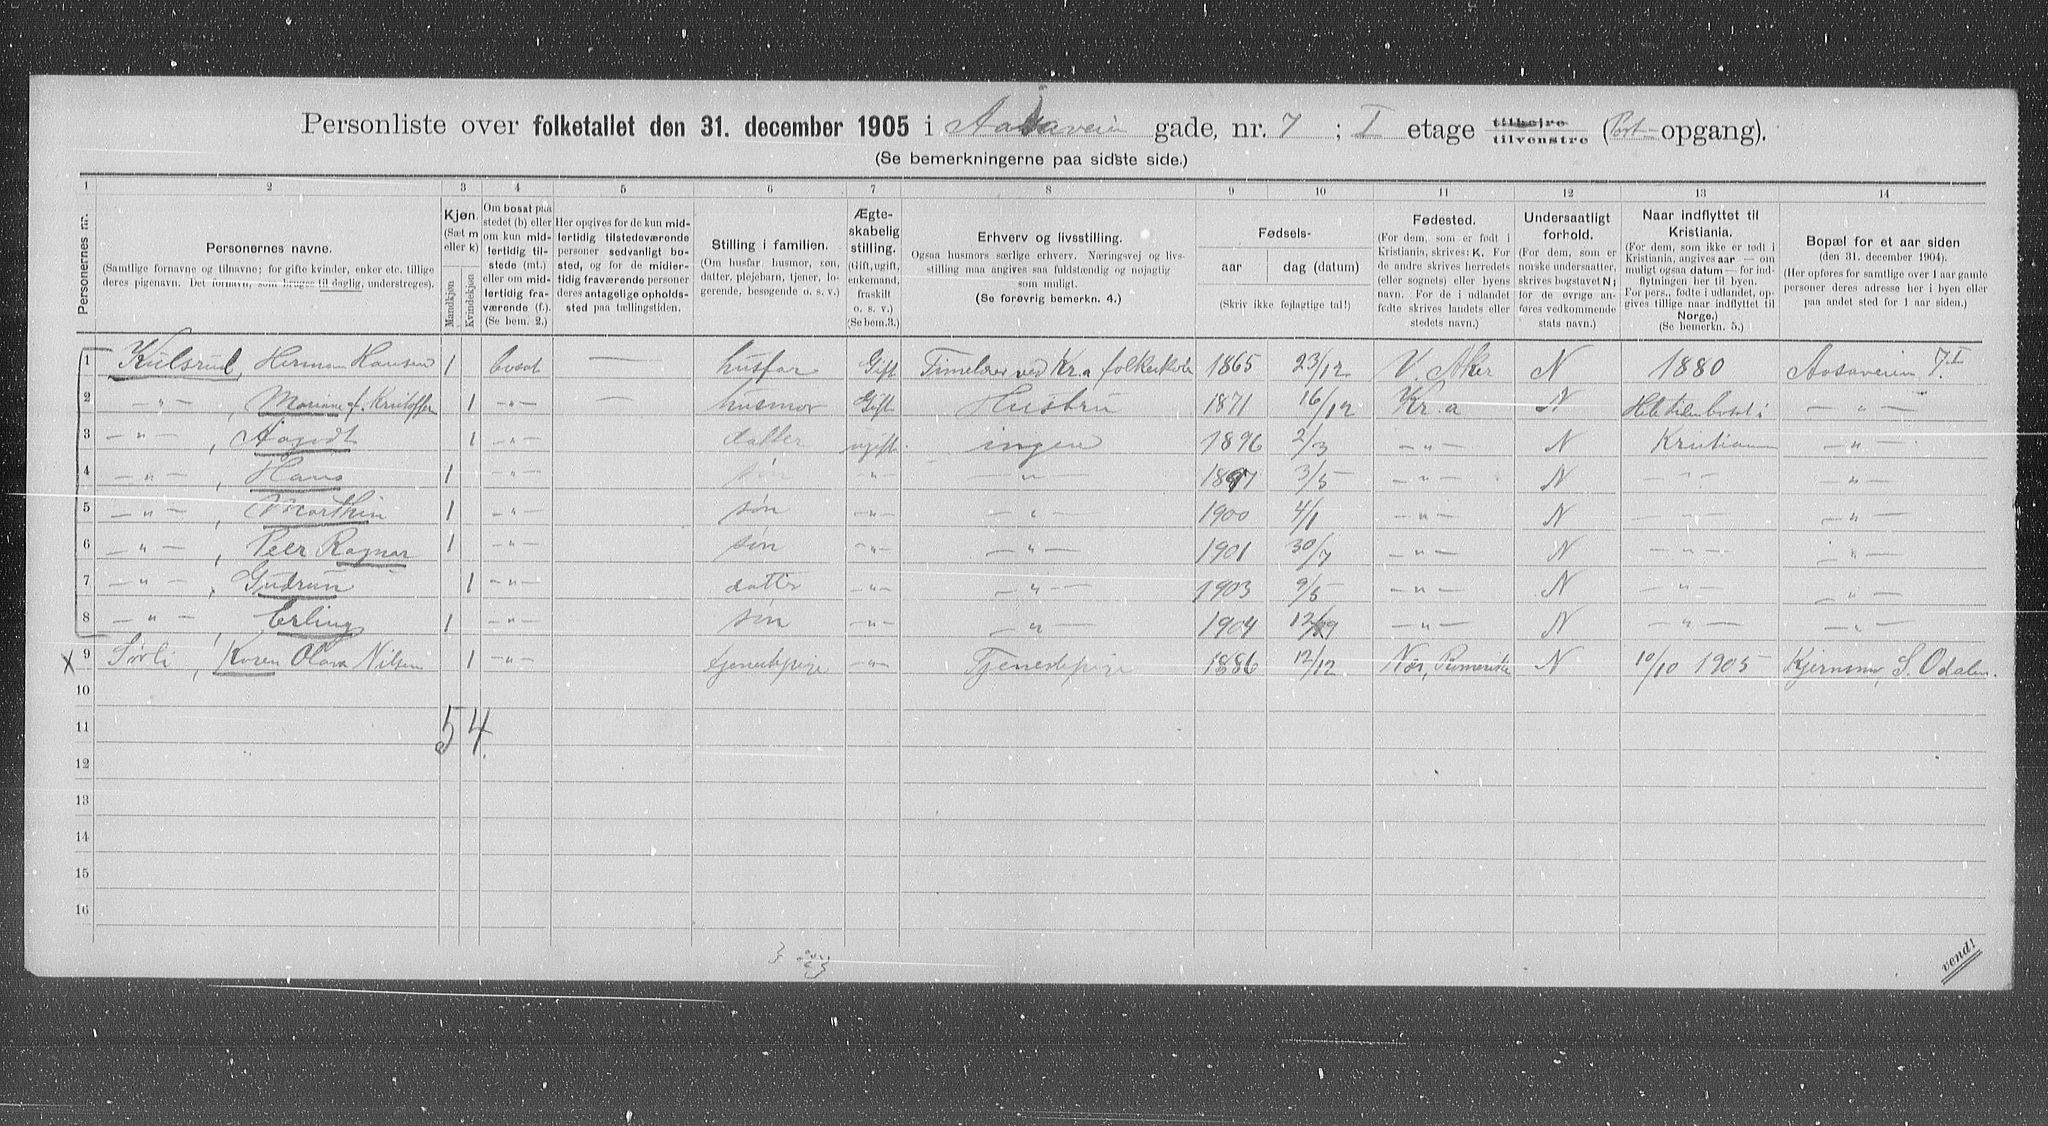 Personliste over folketallet den 31. december 1905 i Aasaveien gade, nr. 7 ; I etage tilhøire tilvenstre (Port-opgang).
(Se bemerkningerne paa sidste side.)
1 2 3 4 5 6 7 8 9 10 11 12 13 14
Personernes nr.
Personernes navne.
(Samtlige fornavne og tilnavne; for gifte kvinder, enker etc. tillige
deres pigenavn. Det fornavn, som bruges til daglig, understreges).
Kjøn.
(Sæt m
eller k)
Mandkjøn
Kvindekjøn
Om bosat paa
stedet (b) eller
om kun mid-
lertidig til-
stede (mt.)
eller om mid-
lertidig fra-
værende (f.).
(Se bem. 2.)
Her opgives for de kun mid-
lertidig tilstedeværende
personer sedvanlig bo-
sted, og for de midler-
tidig fraværende personer
deres antagelige opholds-
sted paa tællingstiden.
Stilling i familien.
(Om husfar, husmor, søn,
datter, plejebarn, tjener, lo-
gerende, besøgende o. s. v.)
Ægte-
skabelig
stilling.
(Gift, ugift,
enkemand,
fraskilt
o. s. v.)
(Se bem.3.)
Erhverv og livsstilling.
Ogsaa husmors særlige erhverv. Næringsvej og livs-
stilling maa angives saa fuldstændig og nøjagtig
som muligt.
(Se forøvrig bemerkn. 4.)
Fødsels-
aar
dag (datum)
(Skriv ikke fejlagtige tal!)
Fødested.
(For dem, som er født i
Kristiania, skrives: K. For
de andre skrives herredets
(eller sognets) eller byens
navn. For de i udlandet
fødte skrives landets eller
stedets navn.)
Undersaatligt
forhold.
(For dem, som er
norske undersaatter,
skrives bogstavet N;
for de øvrige an-
føres vedkommende
stats navn.)
Naar indflyttet til
Kristiania.
(For dem, som ikke er født i
Kristiania, angives aar — om
muligt ogsaa datum — for ind-
flytningen her til byen.
For pers., fødte i udlandet, op-
gives tillige naar indflyttet til
Norge.)
(Se bemerkn. 5.)
Bopæl for et aar siden
(den 31. december 1904).
(Her opføres for samtlige over 1 aar gamle
personer deres adresse her i byen eller
paa andet sted for 1 aar siden.)
1 Kulsrud, Herman Hansen 1 bosat — husfar Gift Timelærer ved Kr.a folkeskole 1865 23/12 V. Aker N 1880 Aasaveien 7.I
2 — " — , Mariane f. Kristoffer 1 -"- — husmor Gift Hustru 1871 16/12 Kr.a N bosat i — " —
3 — " — , Aagodt 1 -"- datter ugift ingen 1896 2/3 — " — N Kristiania — " —
4 — " — , Hans 1 -"- søn -"- — " — 1897 3/5 — " — N — " — — " —
5 — " — , Marthin 1 -"- søn -"- — " — 1900 4/1 — " — N — " — — " —
6 — " — , Peer Ragnar 1 -"- søn -"- — " — 1901 30/7 — " — N — " — — " —
7 — " — , Gudrun 1 -"- datter -"- — " — 1903 9/5 — " — N — " — — " —
8 — " — , Erling 1 -"- søn -"- — " — 1904 12/9 — " — N — " — — " —
x 9 Sørli, Karen Olava Nilsen 1 -"- tjenestepige -"- Tjenestepige 1886 12/12 Nes, Romerike N 10/10 1905 Kjernsmo, S. Odalen.
10
11 5 4
12
13
14
15
16
vend!